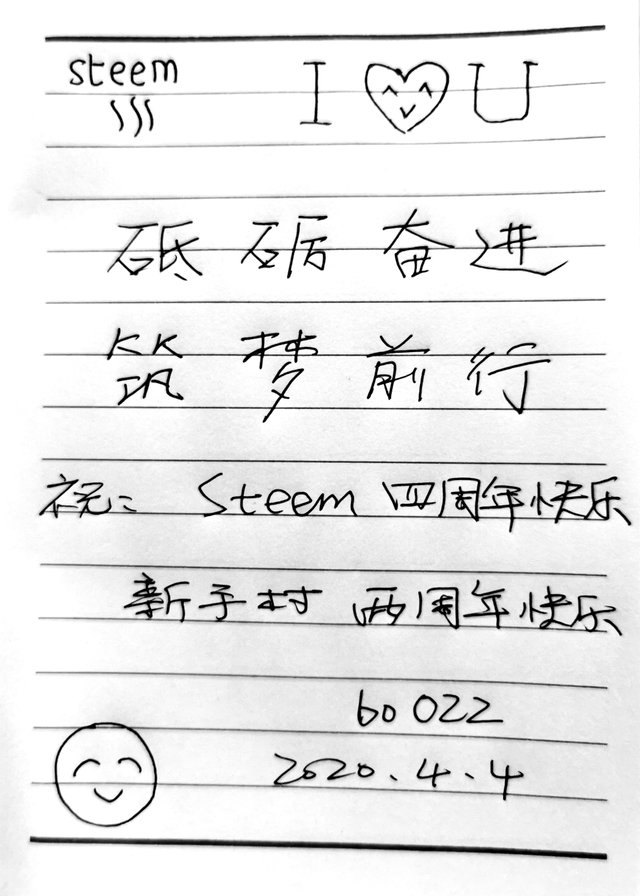 steem I U
砥砺奋进
筑梦前行
祝: Steem 四周年快乐
新手村 两周年快乐
bo 022
2020.4.4